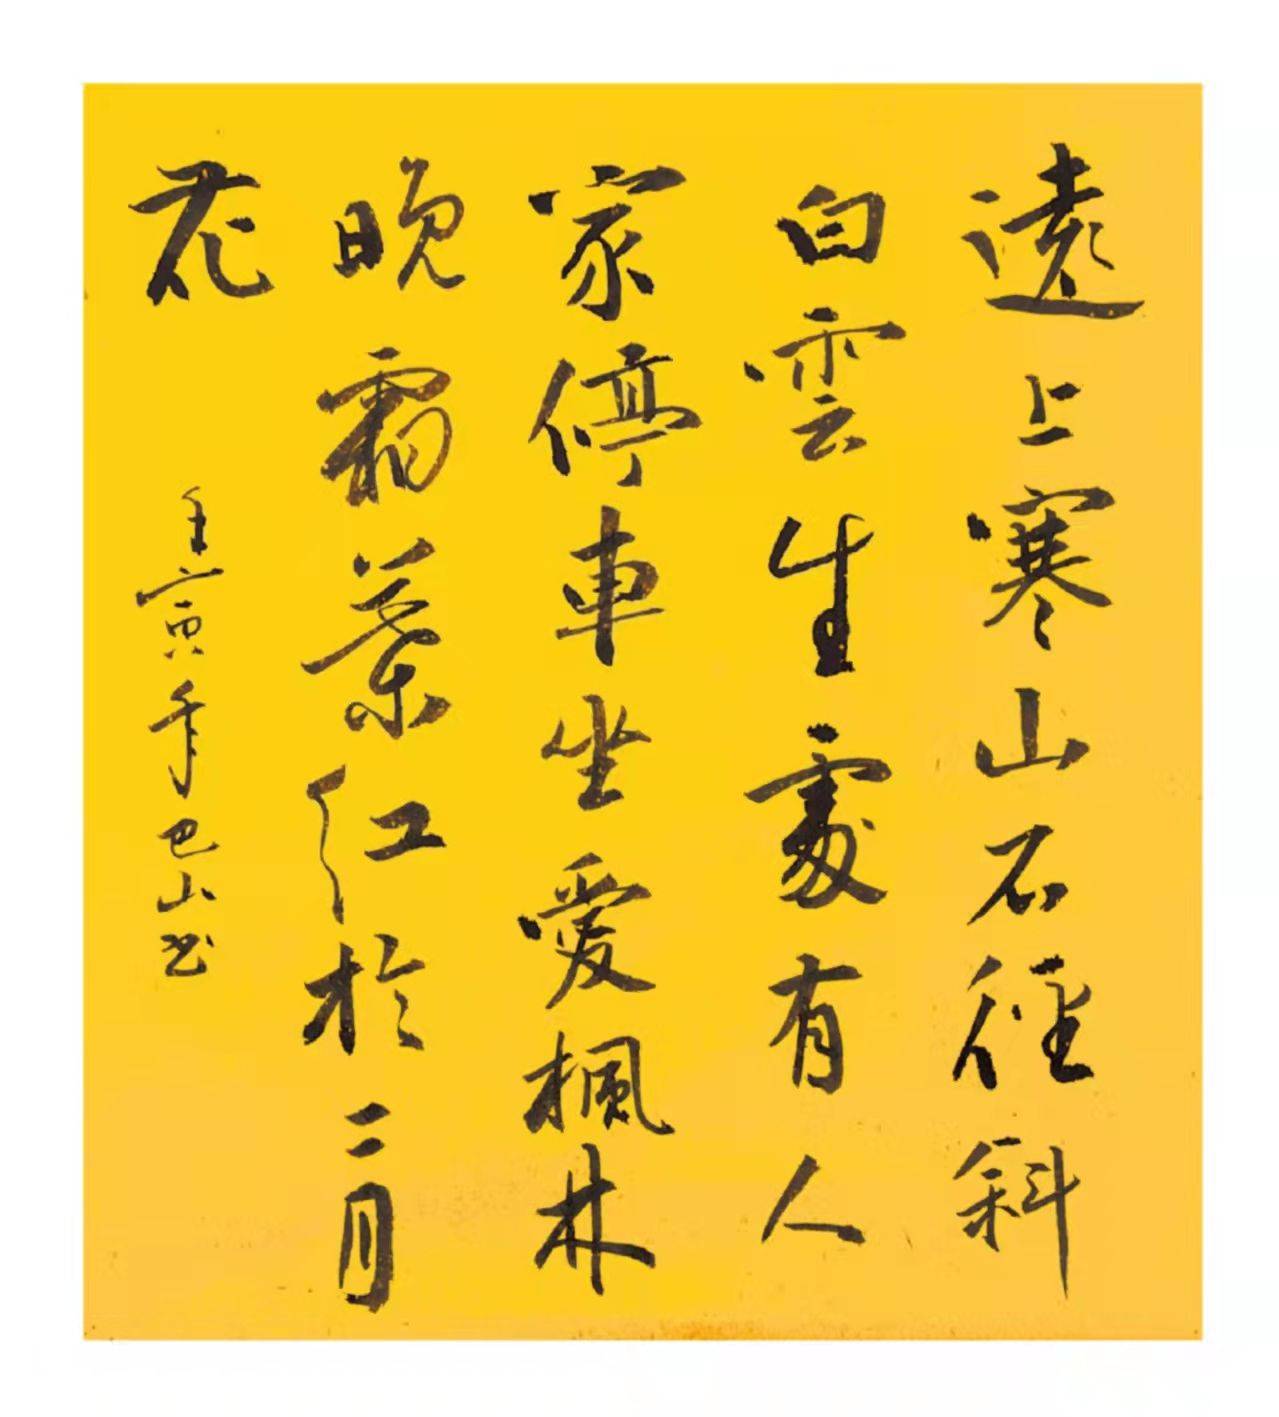 遠上寒山石径斜
白雲生處有人
家停車坐愛楓林
晚霜葉红於二月
花
壬寅年巴山书